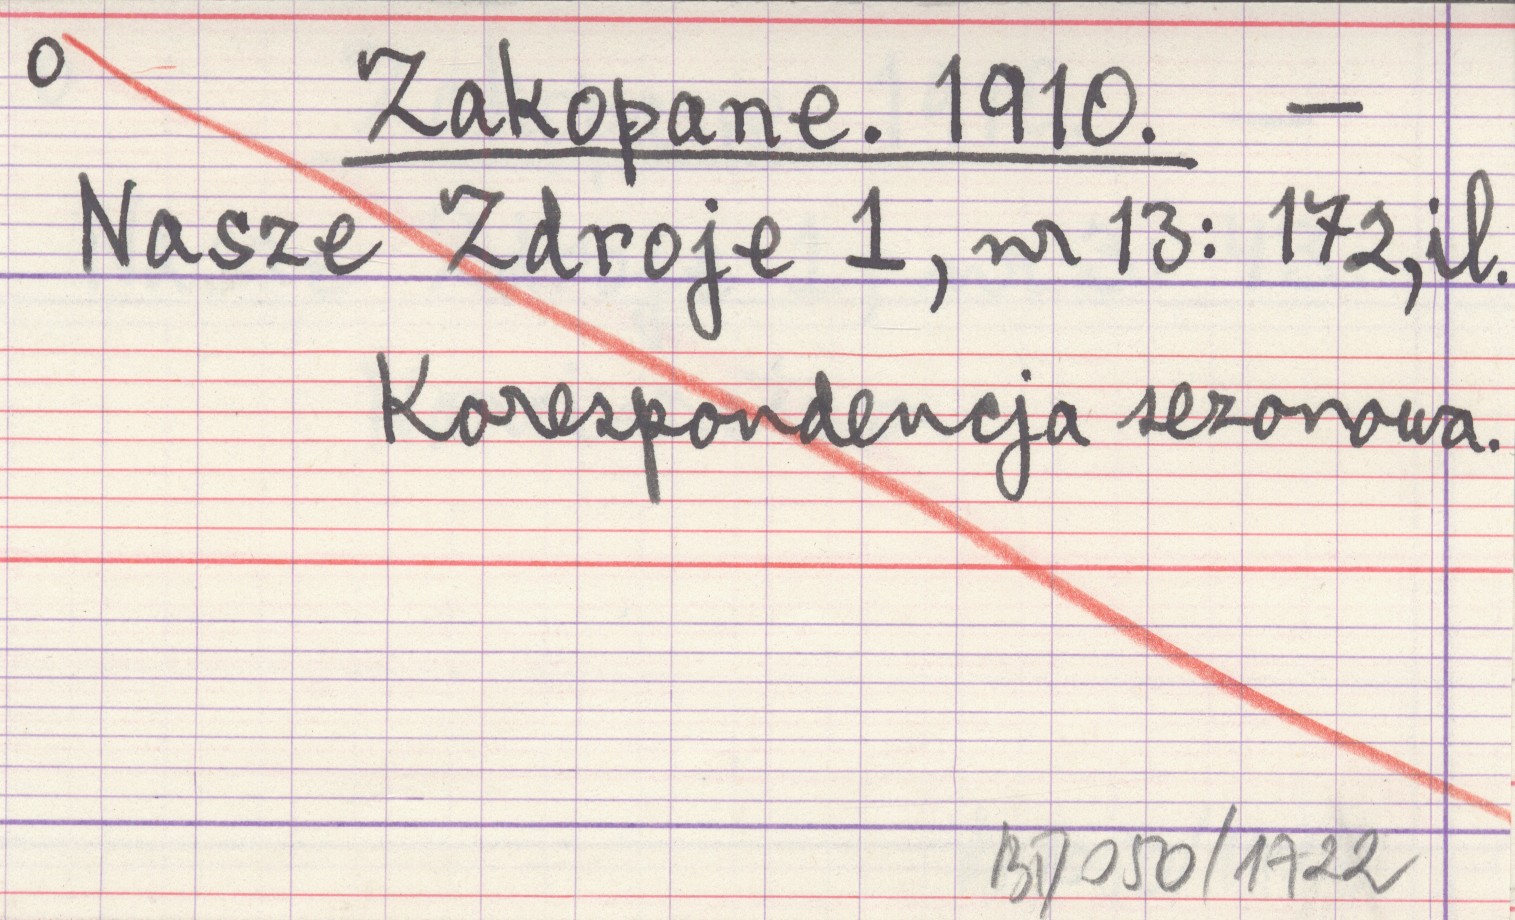 o Zakopane. 1910. —
Nasze Zdroje 1, nr 13: 172, il.
Korespondencja sezonowa.
050/1722